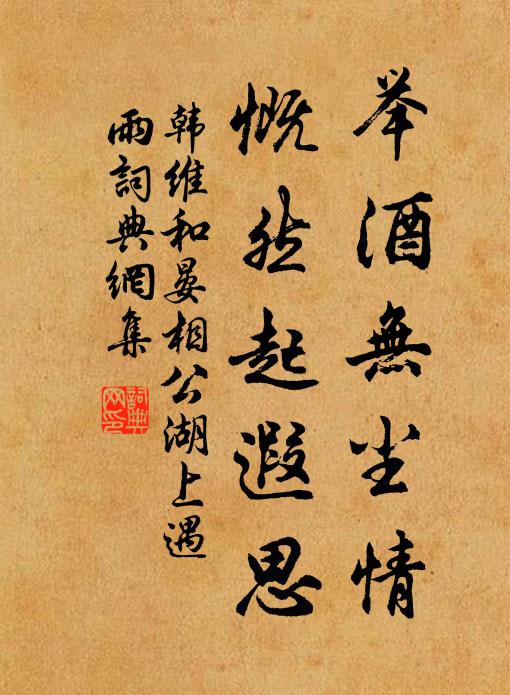 举酒無尘情
慨然起遐思
韩维和晏相公湖上遇
雨詞典網集
詞典
网印